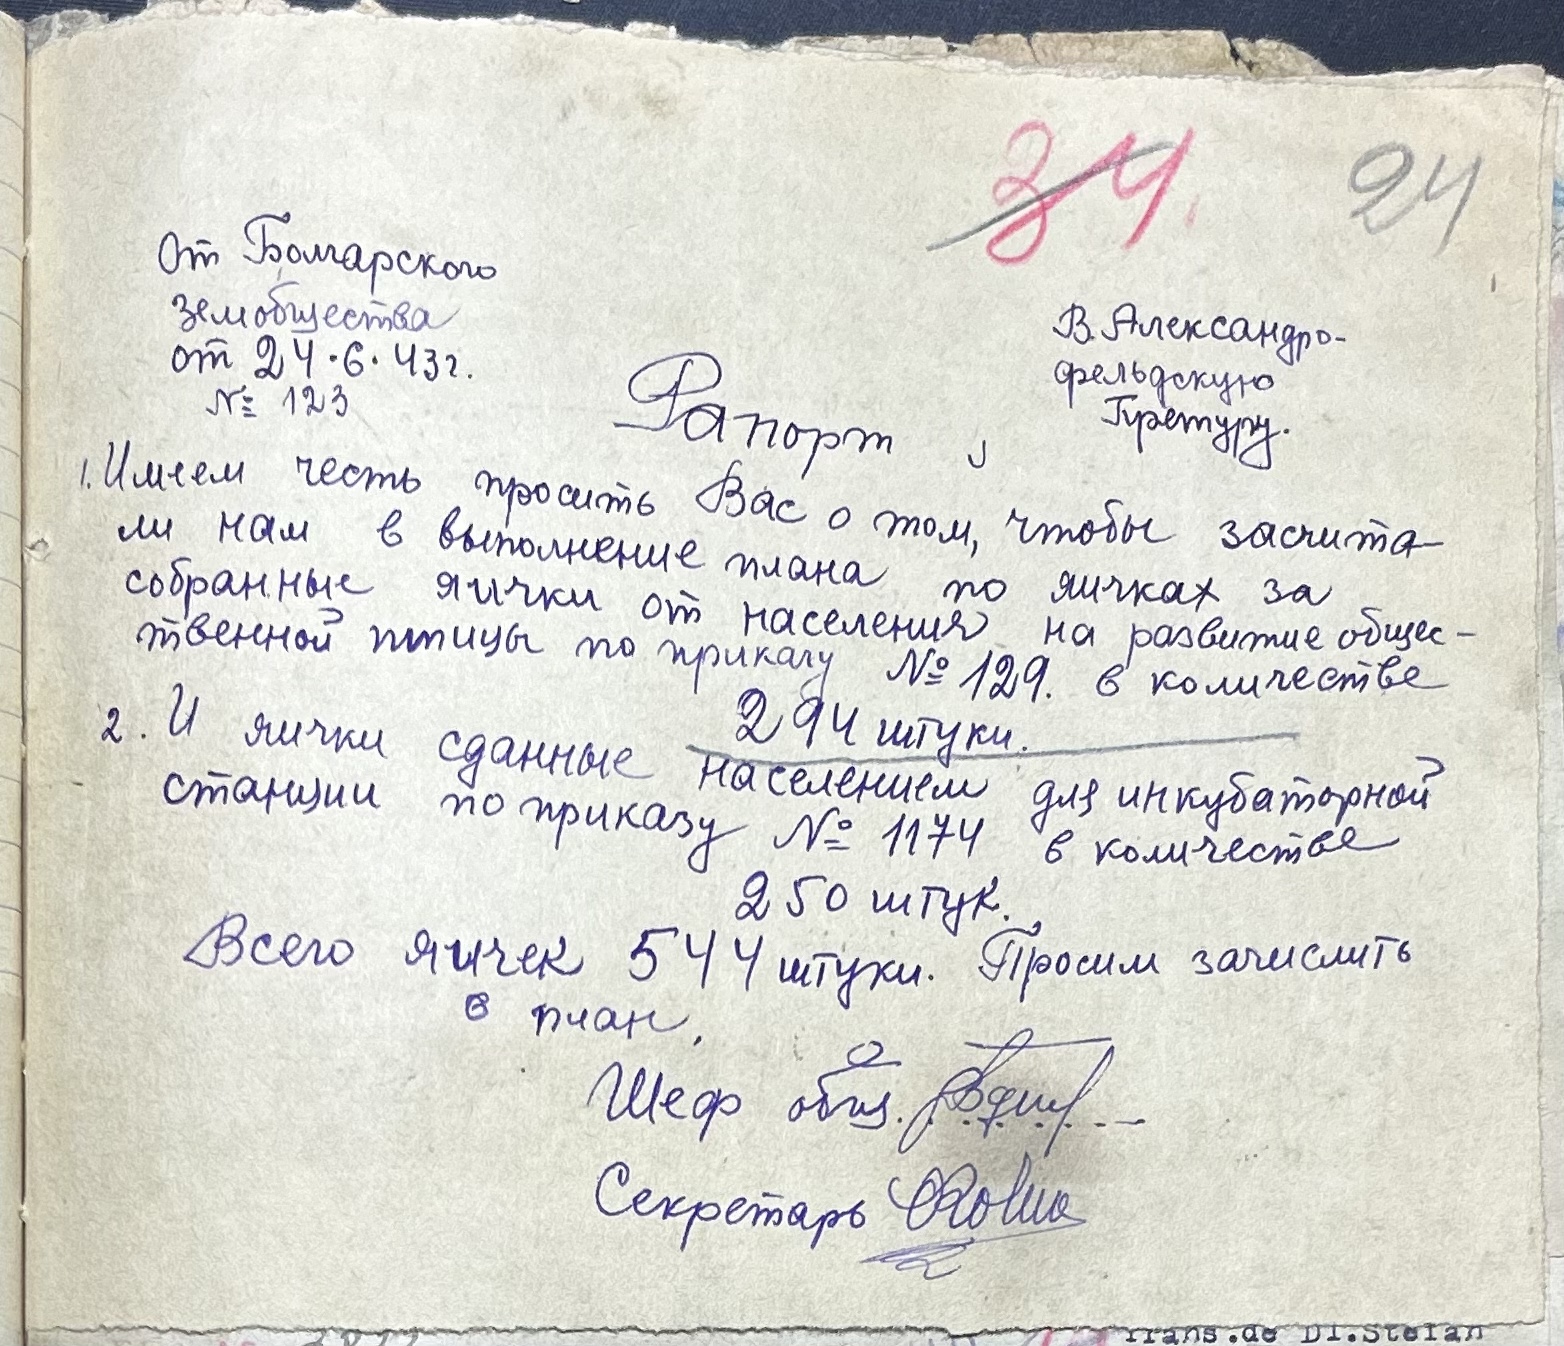 34. 24
От Болгарского
земобщества
от 24.6.43г.
№ 123
В. Александро-
фельдскую
Претуру.
Рапорт
1. Имеем честь просить Вас о том, чтобы засчита-
ли нам в выполнение плана по яичках за
собранные яички от населения на развитие общес-
твенной птицы по приказу № 129. в количестве
294 штуки.
2. И яички сданные населением для инкубаторной
станции по приказу № 1174 в количестве
250 штук.
Всего яичек 544 штуки. Просим зачислить
в план.
Шеф общ.
Секретарь
Trans.de Dl.Stefan